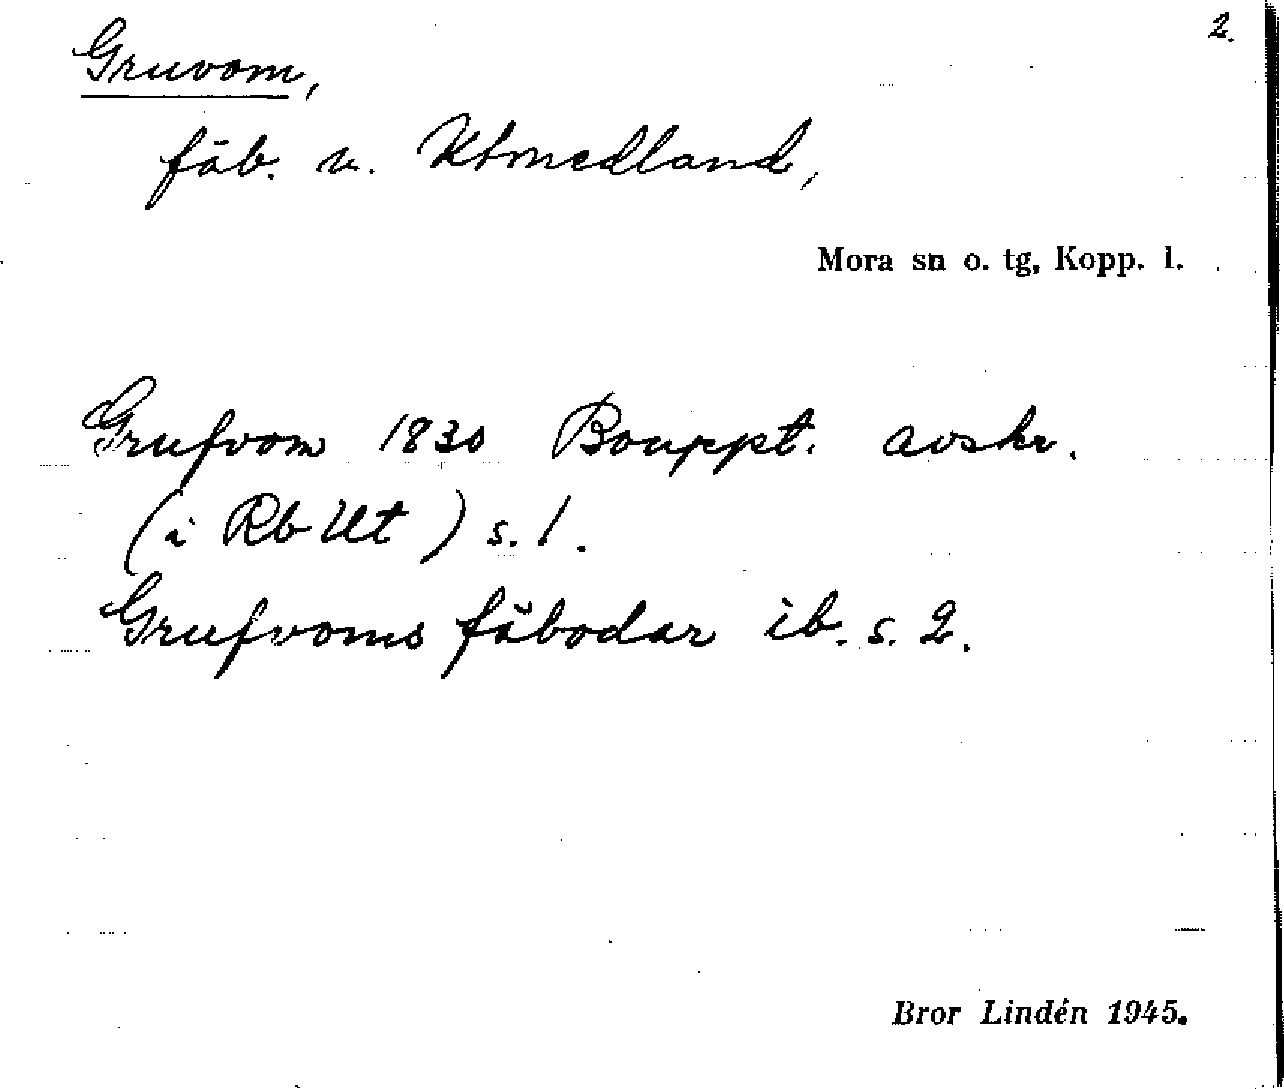 2.
Gruvom,
fäb. u. Utmedland,
Mora sn o. tg, Kopp. l.
Grufvom 1830 Bouppt. avskr.
(i Rb Ut) s. 1.
Grufvoms fäbodar ib. s. 2.
Bror Lindén 1945.